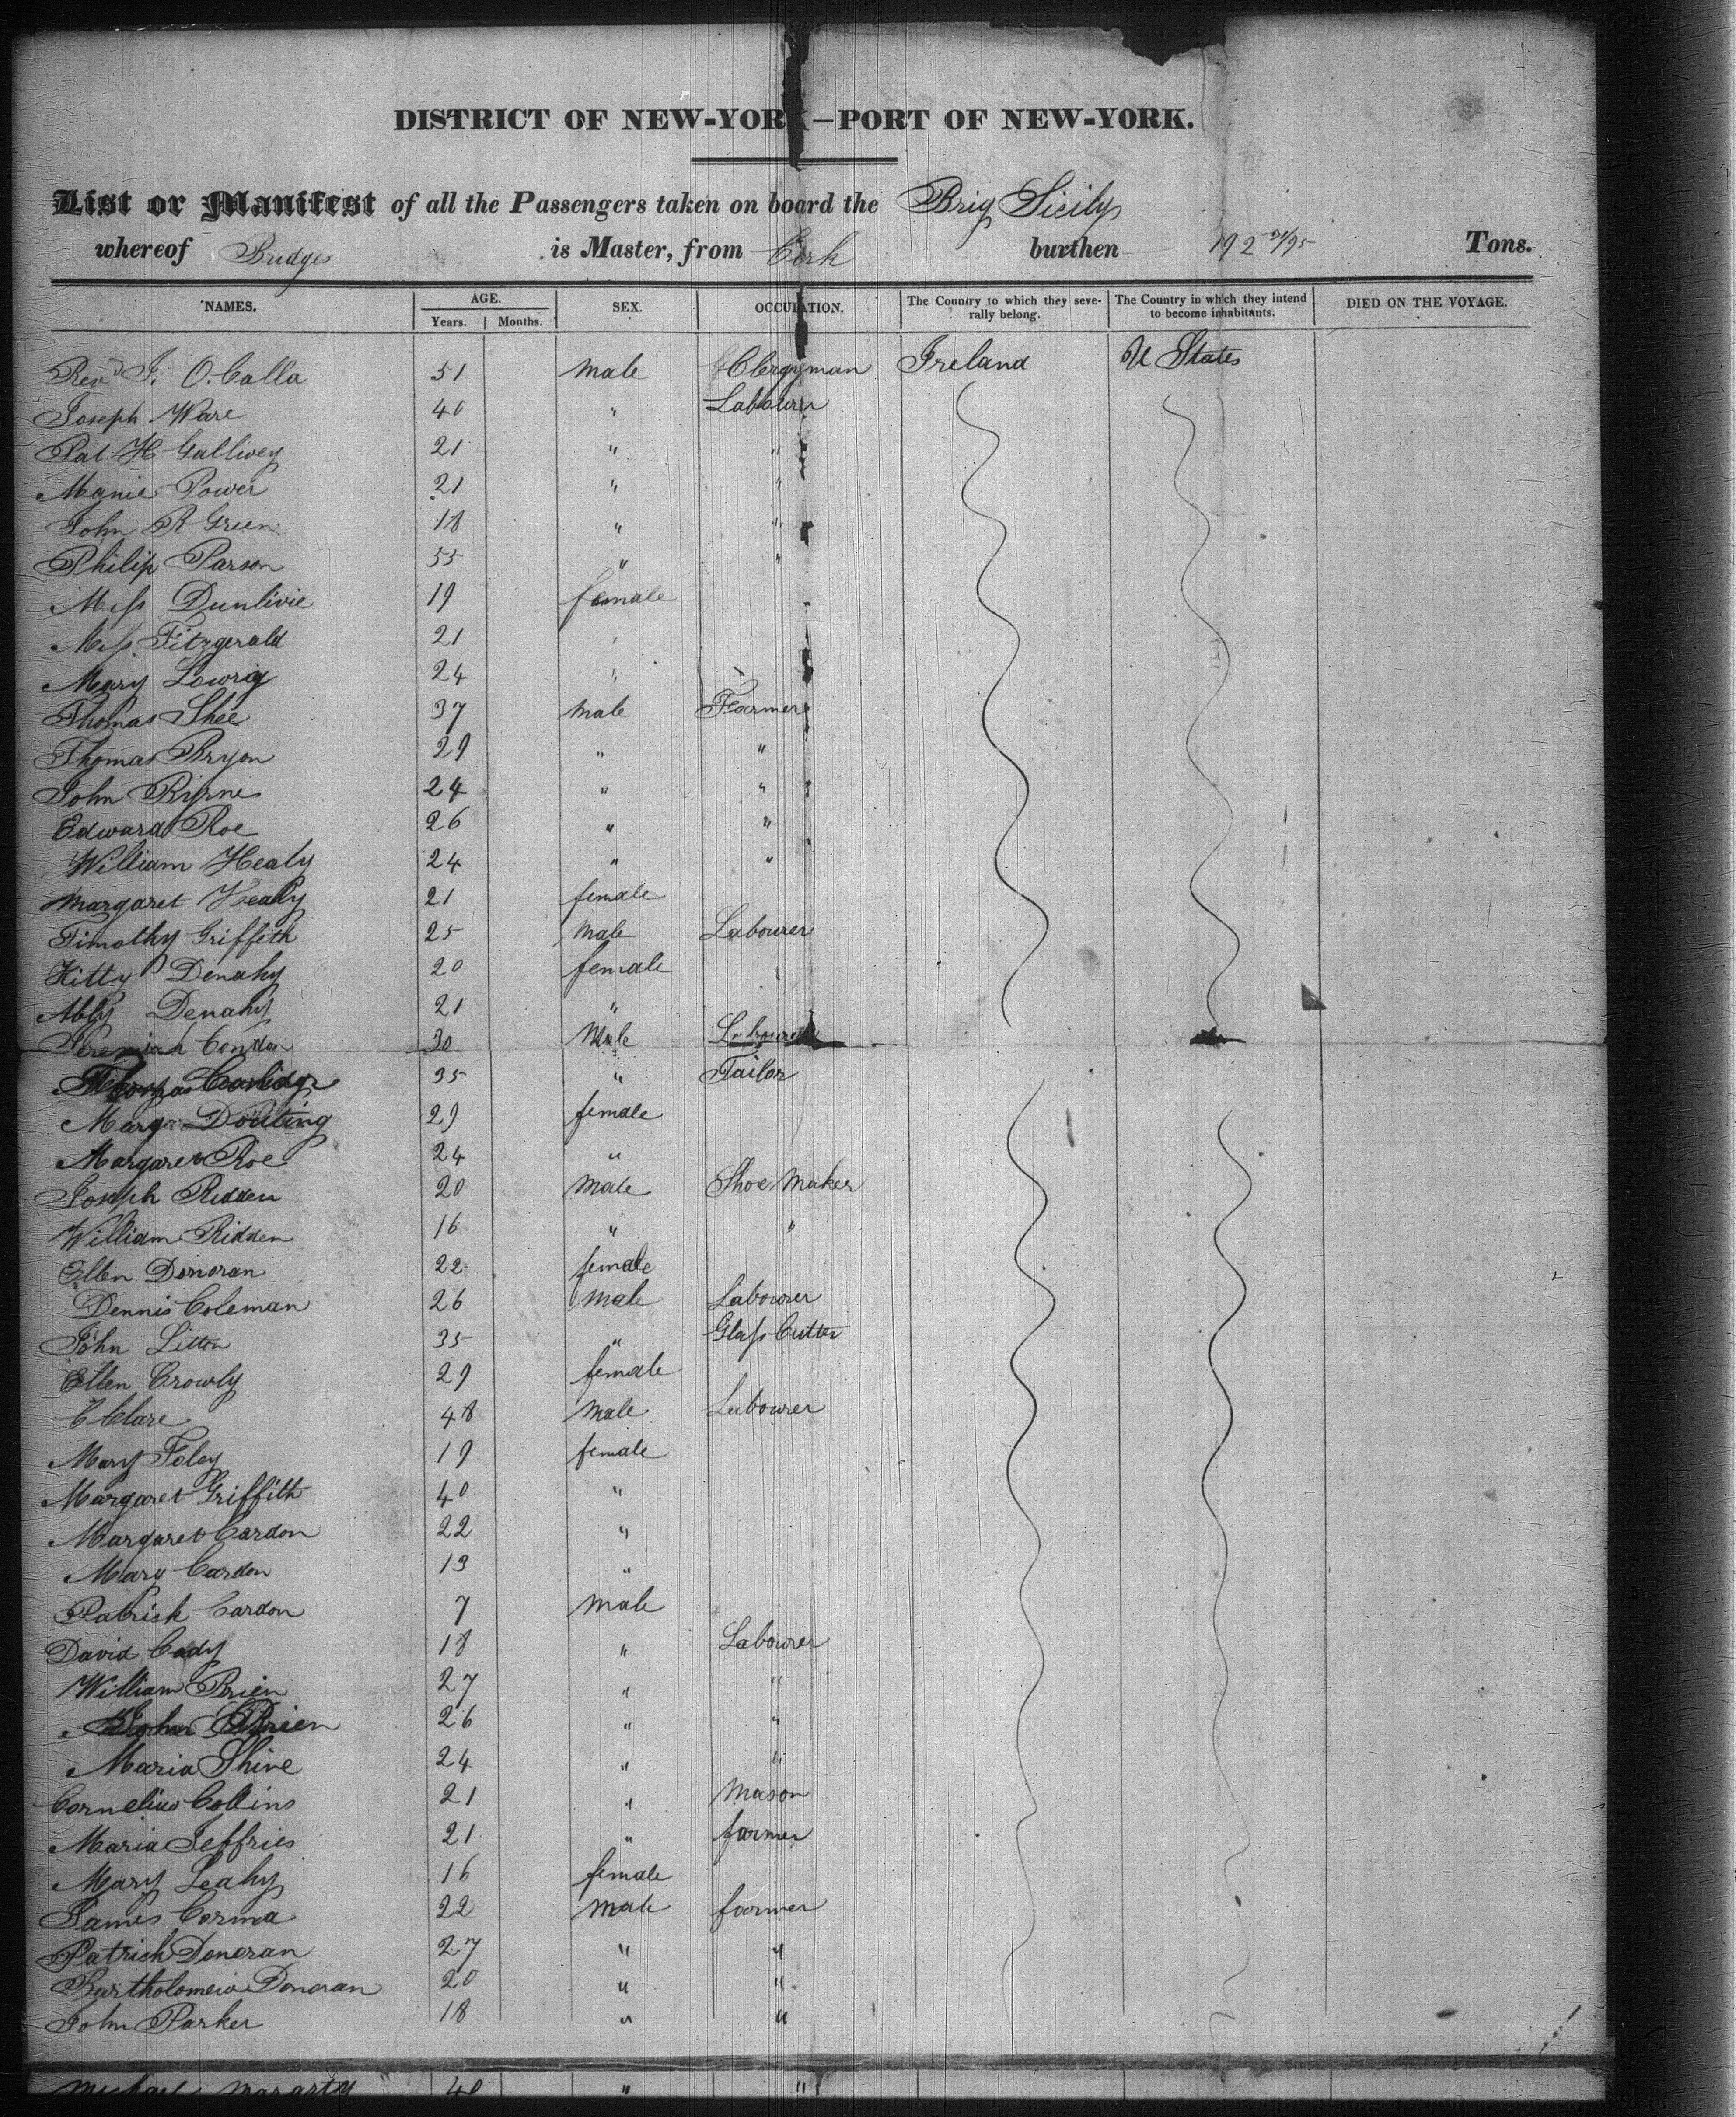 DISTRICT OF NEW-YORK—PORT OF NEW-YORK.
List or Manifest of all the Passengers taken on board the Brig Sicily
whereof Bridges is Master, from Cork burthen 192 Tons.
NAMES. AGE. Years. Months. SEX. OCCUPATION. The Country to which they severally belong. The Country in which they intend to become inhabitants. DIED ON THE VOYAGE.
Revd J. O. Calla 51 Male Clergyman Ireland U States
Joseph Ware 40 " Labourer
Pat H Gallwey 21 " "
Power 21 " "
John R Green 18 " "
Philip Parson 55 " "
Miss Dunlivie 19 female
Miss Fitzgerald 21 "
Mary Lowrig 24 "
Thomas Shee 37 male Farmer
Thomas Bryon 29 " "
John Birne 24 " "
Edward Roe 26 " "
William Healy 24 " "
Margaret Healy 21 female
Timothy Griffith 25 Male Labourer
Kitty Denahy 20 female
Abby Denahy 21 "
Jeremiah Condon 30 Male Labourer
Thomas 35 " Tailor
29 female
Margaret Roe 24 "
Joseph Ridden 20 Male Shoe Maker
William Ridden 16 " "
Ellen Donovan 22 female
Dennis Coleman 26 Male Labourer
John Litton 35 " Glass Cutter
Ellen Crowly 29 female
C Clare 48 Male Labourer
Mary Foley 19 female
Margaret Griffith 40 "
Margaret Cardon 22 "
Mary Cardon 13 "
Patrick Cardon 7 Male
David Cady 18 " Labourer
William Brien 27 " "
John Brien 26 " "
Maria Shine 24 " "
Cornelius Collins 21 " Mason
Maria Jeffries 21 " farmer
Mary Leahy 16 female
James Corma 22 Male farmer
Patrick Donovan 27 " "
Bartholomew Donovan 20 " "
John Parker 18 " "
Michael 40 " "